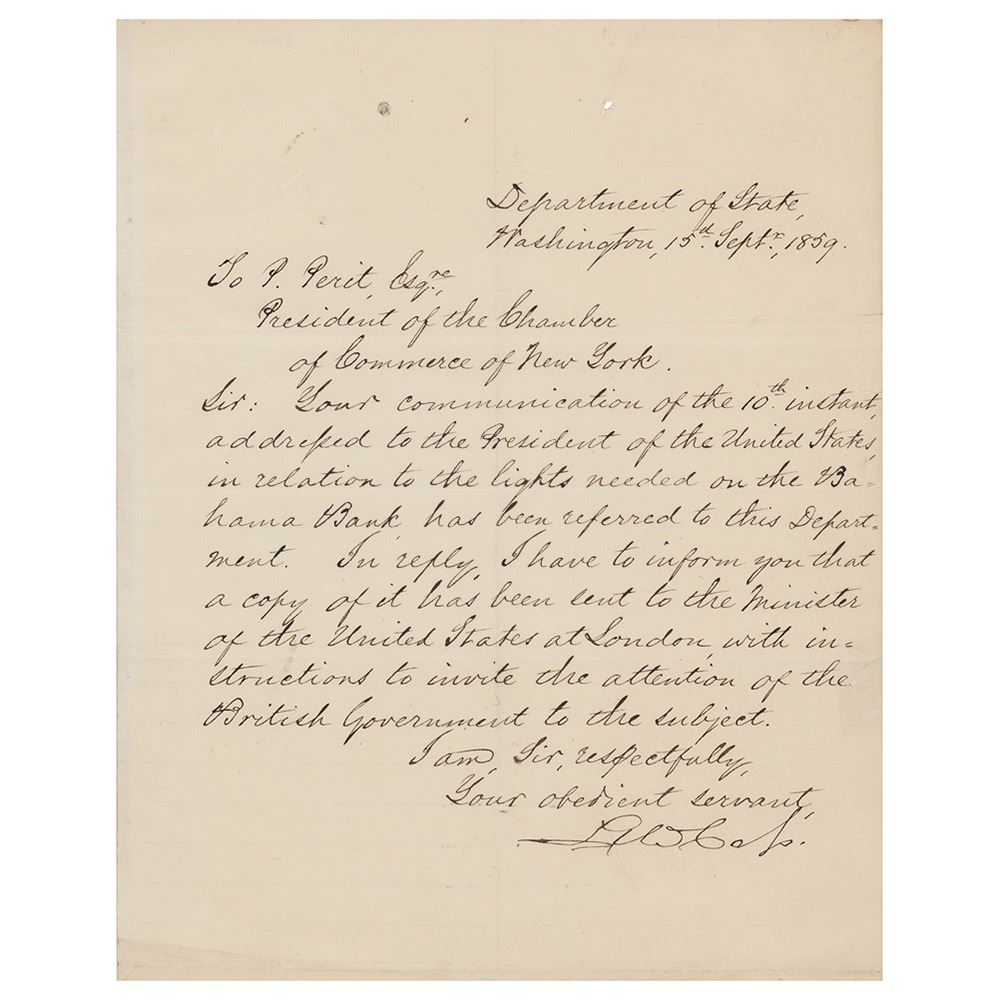 Department of State,
Washington, 15d. Septr., 1859.
To P. Perit, Esqre.,
President of the Chamber
of Commerce of New York.
Sir: Your communication of the 10th. instant,
addressed to the President of the United States,
in relation to the lights needed on the Ba=
hama Bank, has been referred to this Depart=
ment. In reply, I have to inform you that
a copy of it has been sent to the Minister
of the United States at London, with in=
structions to invite the attention of the
British Government to the subject.
I am, Sir, respectfully,
Your obedient servant,
Lew Cass.